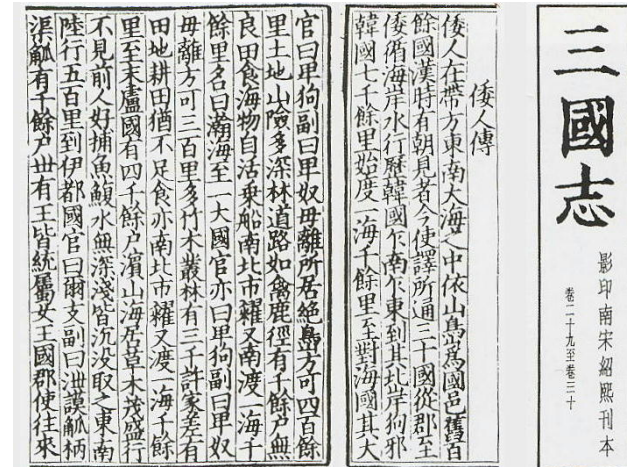 三國志
影印南宋紹熙刊本
卷二十九至卷三十
倭人傳
倭人在帶方東南大海之中依山島爲國邑舊百
餘國漢時有朝見者今使譯所通三十國從郡至
倭循海岸水行歷韓國乍南乍東到其北岸狗邪
韓國七千餘里始度一海千餘里至對海國其大
官曰卑狗副曰卑奴毋離所居絶島方可四百餘
里土地山險多深林道路如禽鹿徑有千餘户無
良田食海物自活乗船南北市糴又南渡一海千
餘里名曰瀚海至一大國官亦曰卑狗副曰卑奴
毋離方可三百里多竹木叢林有三千許家差有
田地耕田猶不足食亦南北市糴又渡一海千餘
里至末盧國有四千餘户濱山海居草木茂盛行
不見前人好捕魚鰒水無深淺皆沉没取之東南
陸行五百里到伊都國官曰爾支副曰泄謨觚柄
渠觚有千餘户丗有王皆統屬女王國郡使往來